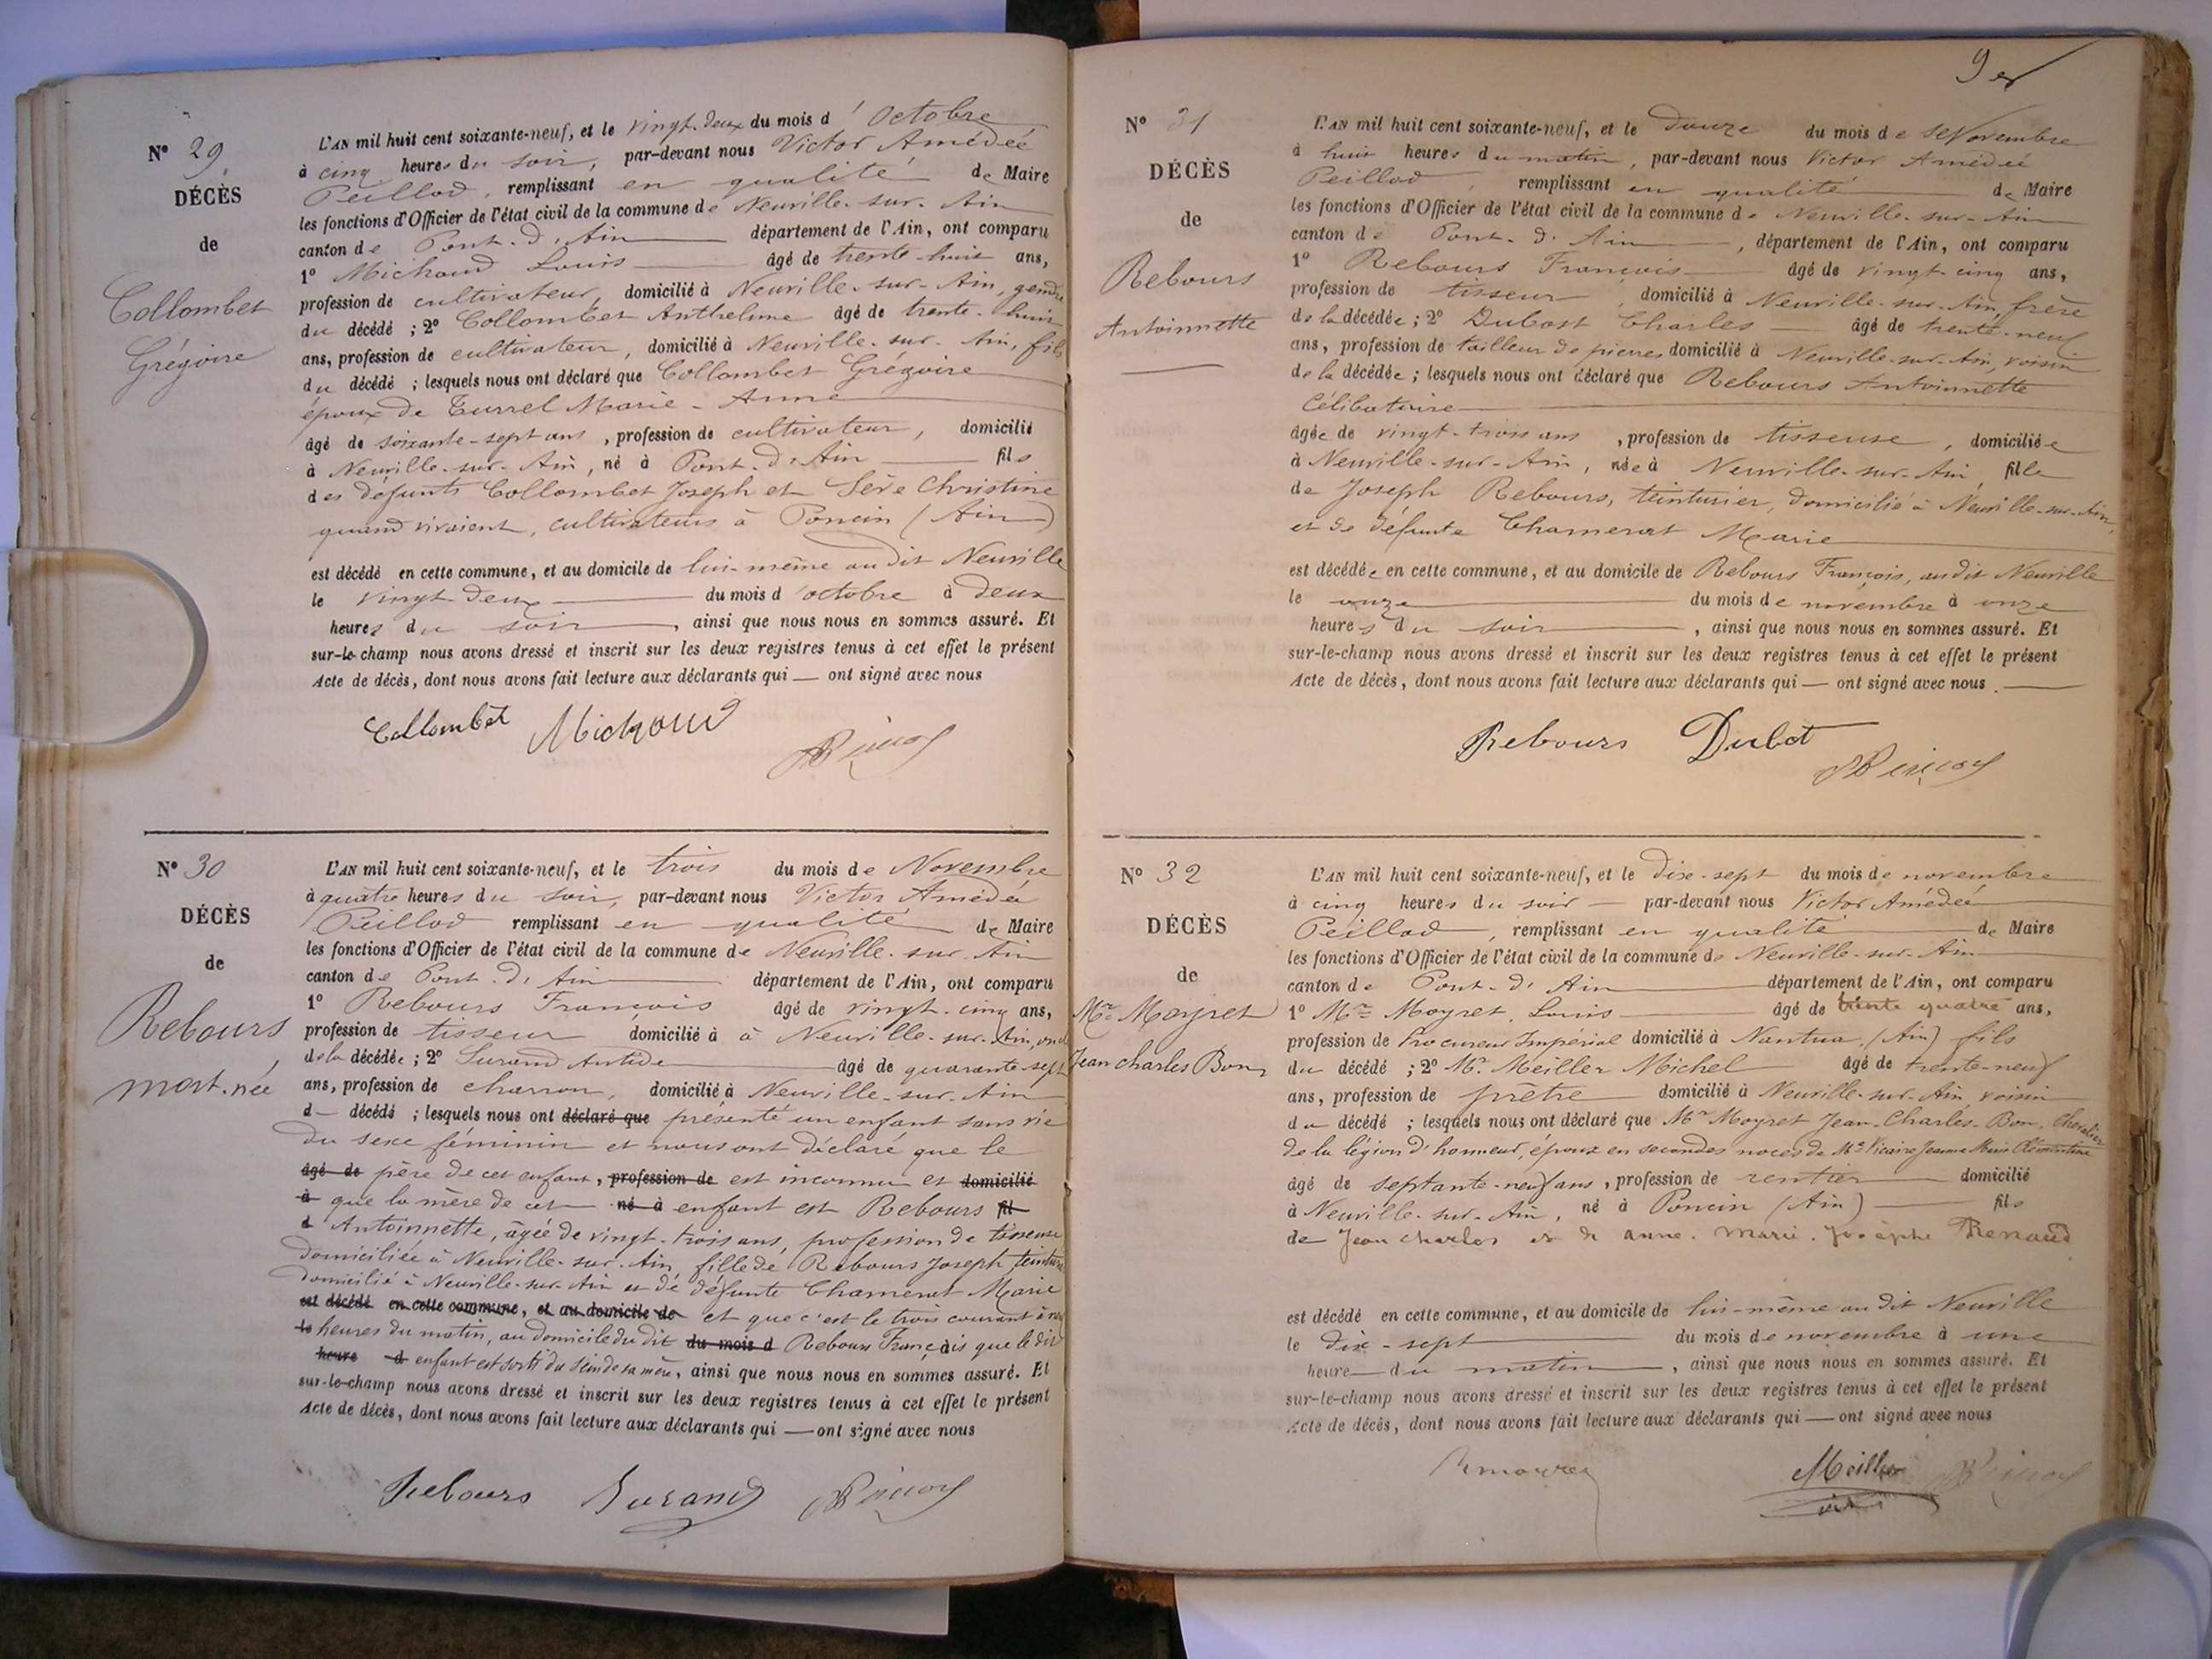 N° 29
DÉCÈS
de
Collombet
Grégoire
L'AN mil huit cent soixante-neuf, et le vingt-deux du mois d'Octobre
à cinq heures du soir, par-devant nous Victor Amédée
Peillod, remplissant en qualité de Maire
les fonctions d'Officier de l'état civil de la commune de Neuville-sur-Ain
canton de Pont-d'Ain département de l'Ain, ont comparu
1° Michaud Louis âgé de trente-huit ans,
profession de cultivateur, domicilié à Neuville-sur-Ain, gendre
du décédé ; 2° Collombet Anthelme âgé de trente-huit
ans, profession de cultivateur, domicilié à Neuville-sur-Ain, fils
du décédé ; lesquels nous ont déclaré que Collombet Grégoire
époux de Turrel Marie-Anne
âgé de soixante-sept ans, profession de cultivateur, domicilié
à Neuville-sur-Ain, né à Pont-d'Ain fils
des défunts Collombet Joseph et Sève Christine
quand vivaient, cultivateurs à Poncin (Ain)
est décédé en cette commune, et au domicile de lui-même au dit Neuville
le vingt-deux du mois d'octobre à deux
heures du soir, ainsi que nous nous en sommes assuré. Et
sur-le-champ nous avons dressé et inscrit sur les deux registres tenus à cet effet le présent
Acte de décès, dont nous avons fait lecture aux déclarants qui — ont signé avec nous
Collombet Michaud
N° 30
DÉCÈS
de
Rebours,
mort-née
L'AN mil huit cent soixante-neuf, et le trois du mois de Novembre
à quatre heures du soir, par-devant nous Victor Amédée
Peillod remplissant en qualité de Maire
les fonctions d'Officier de l'état civil de la commune de Neuville-sur-Ain
canton de Pont-d'Ain département de l'Ain, ont comparu
1° Rebours François âgé de vingt-cinq ans,
profession de tisseur domicilié à à Neuville-sur-Ain, oncle
de la décédée ; 2° Surand Antide âgé de quarante-sept
ans, profession de charron, domicilié à Neuville-sur-Ain
d— décédé ; lesquels nous ont déclaré que présenté un enfant sans vie
du sexe féminin et nous ont déclaré que le
âgé de père de cet enfant, profession de est inconnu et domicilié
à que la mère de cet né à enfant est Rebours fil
d Antoinnette, âgée de vingt-trois ans, profession de tisseuse
domiciliée à Neuville-sur-Ain, fille de Rebours Joseph, teinturier
domicilié à Neuville-sur-Ain et de défunte Chamerat Marie
est décédé en cette commune, et au domicile de et que c'est le trois courant à
le heures du matin, au domicile du dit du mois d Rebours François que le dit
heure d enfant est sorti du sein de sa mère, ainsi que nous nous en sommes assuré. Et
sur-le-champ nous avons dressé et inscrit sur les deux registres tenus à cet effet le présent
Acte de décès, dont nous avons fait lecture aux déclarants qui — ont signé avec nous
Rebours Surand
9
N° 31
DÉCÈS
de
Rebours
Antoinnette
L'AN mil huit cent soixante-neuf, et le douze du mois de Novembre
à huit heures du matin, par-devant nous Victor Amédée
Peillod, remplissant en qualité de Maire
les fonctions d'Officier de l'état civil de la commune de Neuville-sur-Ain
canton de Pont-d'Ain, département de l'Ain, ont comparu
1° Rebours François âgé de vingt-cinq ans,
profession de tisseur, domicilié à Neuville-sur-Ain, frère
de la décédée ; 2° Dubost Charles âgé de trente-neuf
ans, profession de tailleur de pierres domicilié à Neuville-sur-Ain, voisin
de la décédée ; lesquels nous ont déclaré que Rebours Antoinnette
Célibataire
âgée de vingt-trois ans, profession de tisseuse, domiciliée
à Neuville-sur-Ain, née à Neuville-sur-Ain, fille
de Joseph Rebours, teinturier, domicilié à Neuville-sur-Ain,
et de défunte Chamerat Marie
est décédée en cette commune, et au domicile de Rebours François, au dit Neuville
le onze du mois de novembre à onze
heures du soir, ainsi que nous nous en sommes assuré. Et
sur-le-champ nous avons dressé et inscrit sur les deux registres tenus à cet effet le présent
Acte de décès, dont nous avons fait lecture aux déclarants qui — ont signé avec nous.
Rebours Dubot
N° 32
DÉCÈS
de
Mr Moyret
Jean Charles Bon
L'AN mil huit cent soixante-neuf, et le dix-sept du mois de novembre
à cinq heures du soir par-devant nous Victor Amédée
Peillod, remplissant en qualité de Maire
les fonctions d'Officier de l'état civil de la commune de Neuville-sur-Ain
canton de Pont-d'Ain département de l'Ain, ont comparu
1° Mr Moyret, Louis âgé de trente quatre ans,
profession de Procureur Impérial domicilié à Nantua (Ain) fils
du décédé ; 2° Mr Meiller Michel âgé de trente-neuf
ans, profession de prêtre domicilié à Neuville-sur-Ain, voisin
du décédé ; lesquels nous ont déclaré que Mr Moyret Jean-Charles-Bon, Chevalier
de la légion d'honneur, époux en secondes noces de Me Vicaire Jeanne Marie Clémentine
âgé de septante-neuf ans, profession de rentier domicilié
à Neuville-sur-Ain, né à Poncin (Ain) fils
de Jean Charles et de Anne-Marie-Josèphe Renaud
est décédé en cette commune, et au domicile de lui-même au dit Neuville
le dix-sept du mois de novembre à une
heure du matin, ainsi que nous nous en sommes assuré. Et
sur-le-champ nous avons dressé et inscrit sur les deux registres tenus à cet effet le présent
Acte de décès, dont nous avons fait lecture aux déclarants qui — ont signé avec nous
Meiller